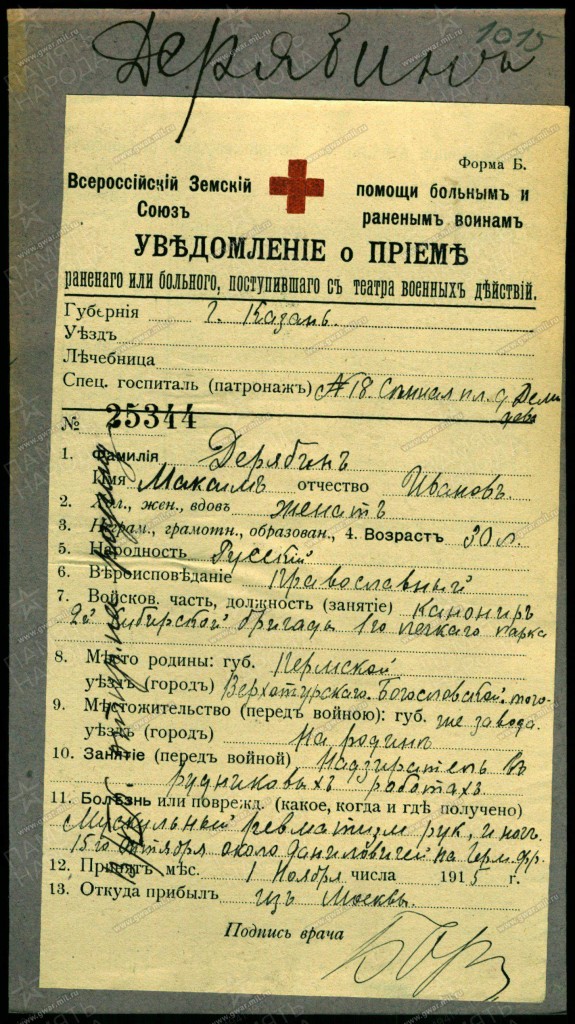 1015
Дерябинъ
Форма Б.
Всероссійскій Земскій Союзъ
помощи больнымъ и раненымъ воинамъ
УВѢДОМЛЕНІЕ о ПРІЕМѢ
раненаго или больного, поступившаго съ театра военныхъ дѣйствій.
Губернія г. Казань.
Уѣздъ
Лѣчебница
Спец. госпиталь (патронажъ) № 18.
№ 25344
1. Фамилія Дерябинъ
Имя Максимъ отчество Ивановъ.
2. Хол., жен., вдовъ женатъ
3. Неграм., грамотн., образован., 4. Возрастъ 30 л.
5. Народность Русскій
6. Вѣроисповѣданіе православный
7. Войсков. часть, должность (занятіе) канониръ
2й Сибирской бригады 1го легкаго парка
8. Мѣсто родины: губ. Пермской
уѣздъ (городъ) Верхотурскаго. Богословской. того-
9. Мѣстожительство (передъ войною): губ. же завода.
уѣздъ (городъ) на родинѣ
10. Занятіе (передъ войной) надзиратель въ
рудниковыхъ работахъ
11. Болѣзнь или поврежд. (какое, когда и гдѣ получено)
Мускульный ревматизм рук, и ног.
15го октября около Даниловичей на Герм. фр.
12. Принятъ мѣс. 1 Ноября числа 1915 г.
13. Откуда прибылъ изъ Москвы.
Подпись врача
на родину
www.gwar.mil.ru
ПАМЯТЬ НАРОДА